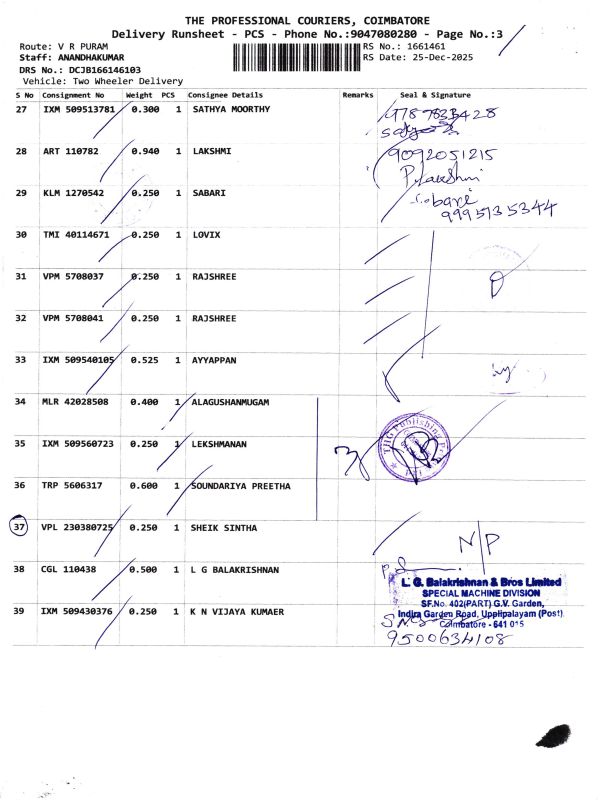 THE PROFESSIONAL COURIERS, COIMBATORE
Delivery Runsheet - PCS - Phone No.:9047080280 - Page No.:3
Route: V R PURAM
RS No.: 1661461
Staff: ANANDHAKUMAR
RS Date: 25-Dec-2025
DRS No.: DCJB166146103
Vehicle: Two Wheeler Delivery
S No Consignment No Weight PCS Consignee Details Remarks Seal & Signature
27 IXM 509513781 0.300 1 SATHYA MOORTHY
28 ART 110782 0.940 1 LAKSHMI 9092051215
P. Lakshmi
29 KLM 1270542 0.250 1 SABARI Sabari
9995135344
30 TMI 40114671 0.250 1 LOVIX
31 VPM 5708037 0.250 1 RAJSHREE
32 VPM 5708041 0.250 1 RAJSHREE
33 IXM 509540105 0.525 1 AYYAPPAN
34 MLR 42028508 0.400 1 ALAGUSHANMUGAM
35 IXM 509560723 0.250 1 LEKSHMANAN
36 TRP 5606317 0.600 1 SOUNDARIYA PREETHA
37 VPL 230380725 0.250 1 SHEIK SINTHA N/P
38 CGL 110438 0.500 1 L G BALAKRISHNAN
L. G. Balakrishnan & Bros Limited
SPECIAL MACHINE DIVISION
SF.No. 402(PART) G.V. Garden,
39 IXM 509430376 0.250 1 K N VIJAYA KUMAER
Indira Garden Road, Upplipalayam (Post)
Coimbatore - 641 015
9500634108